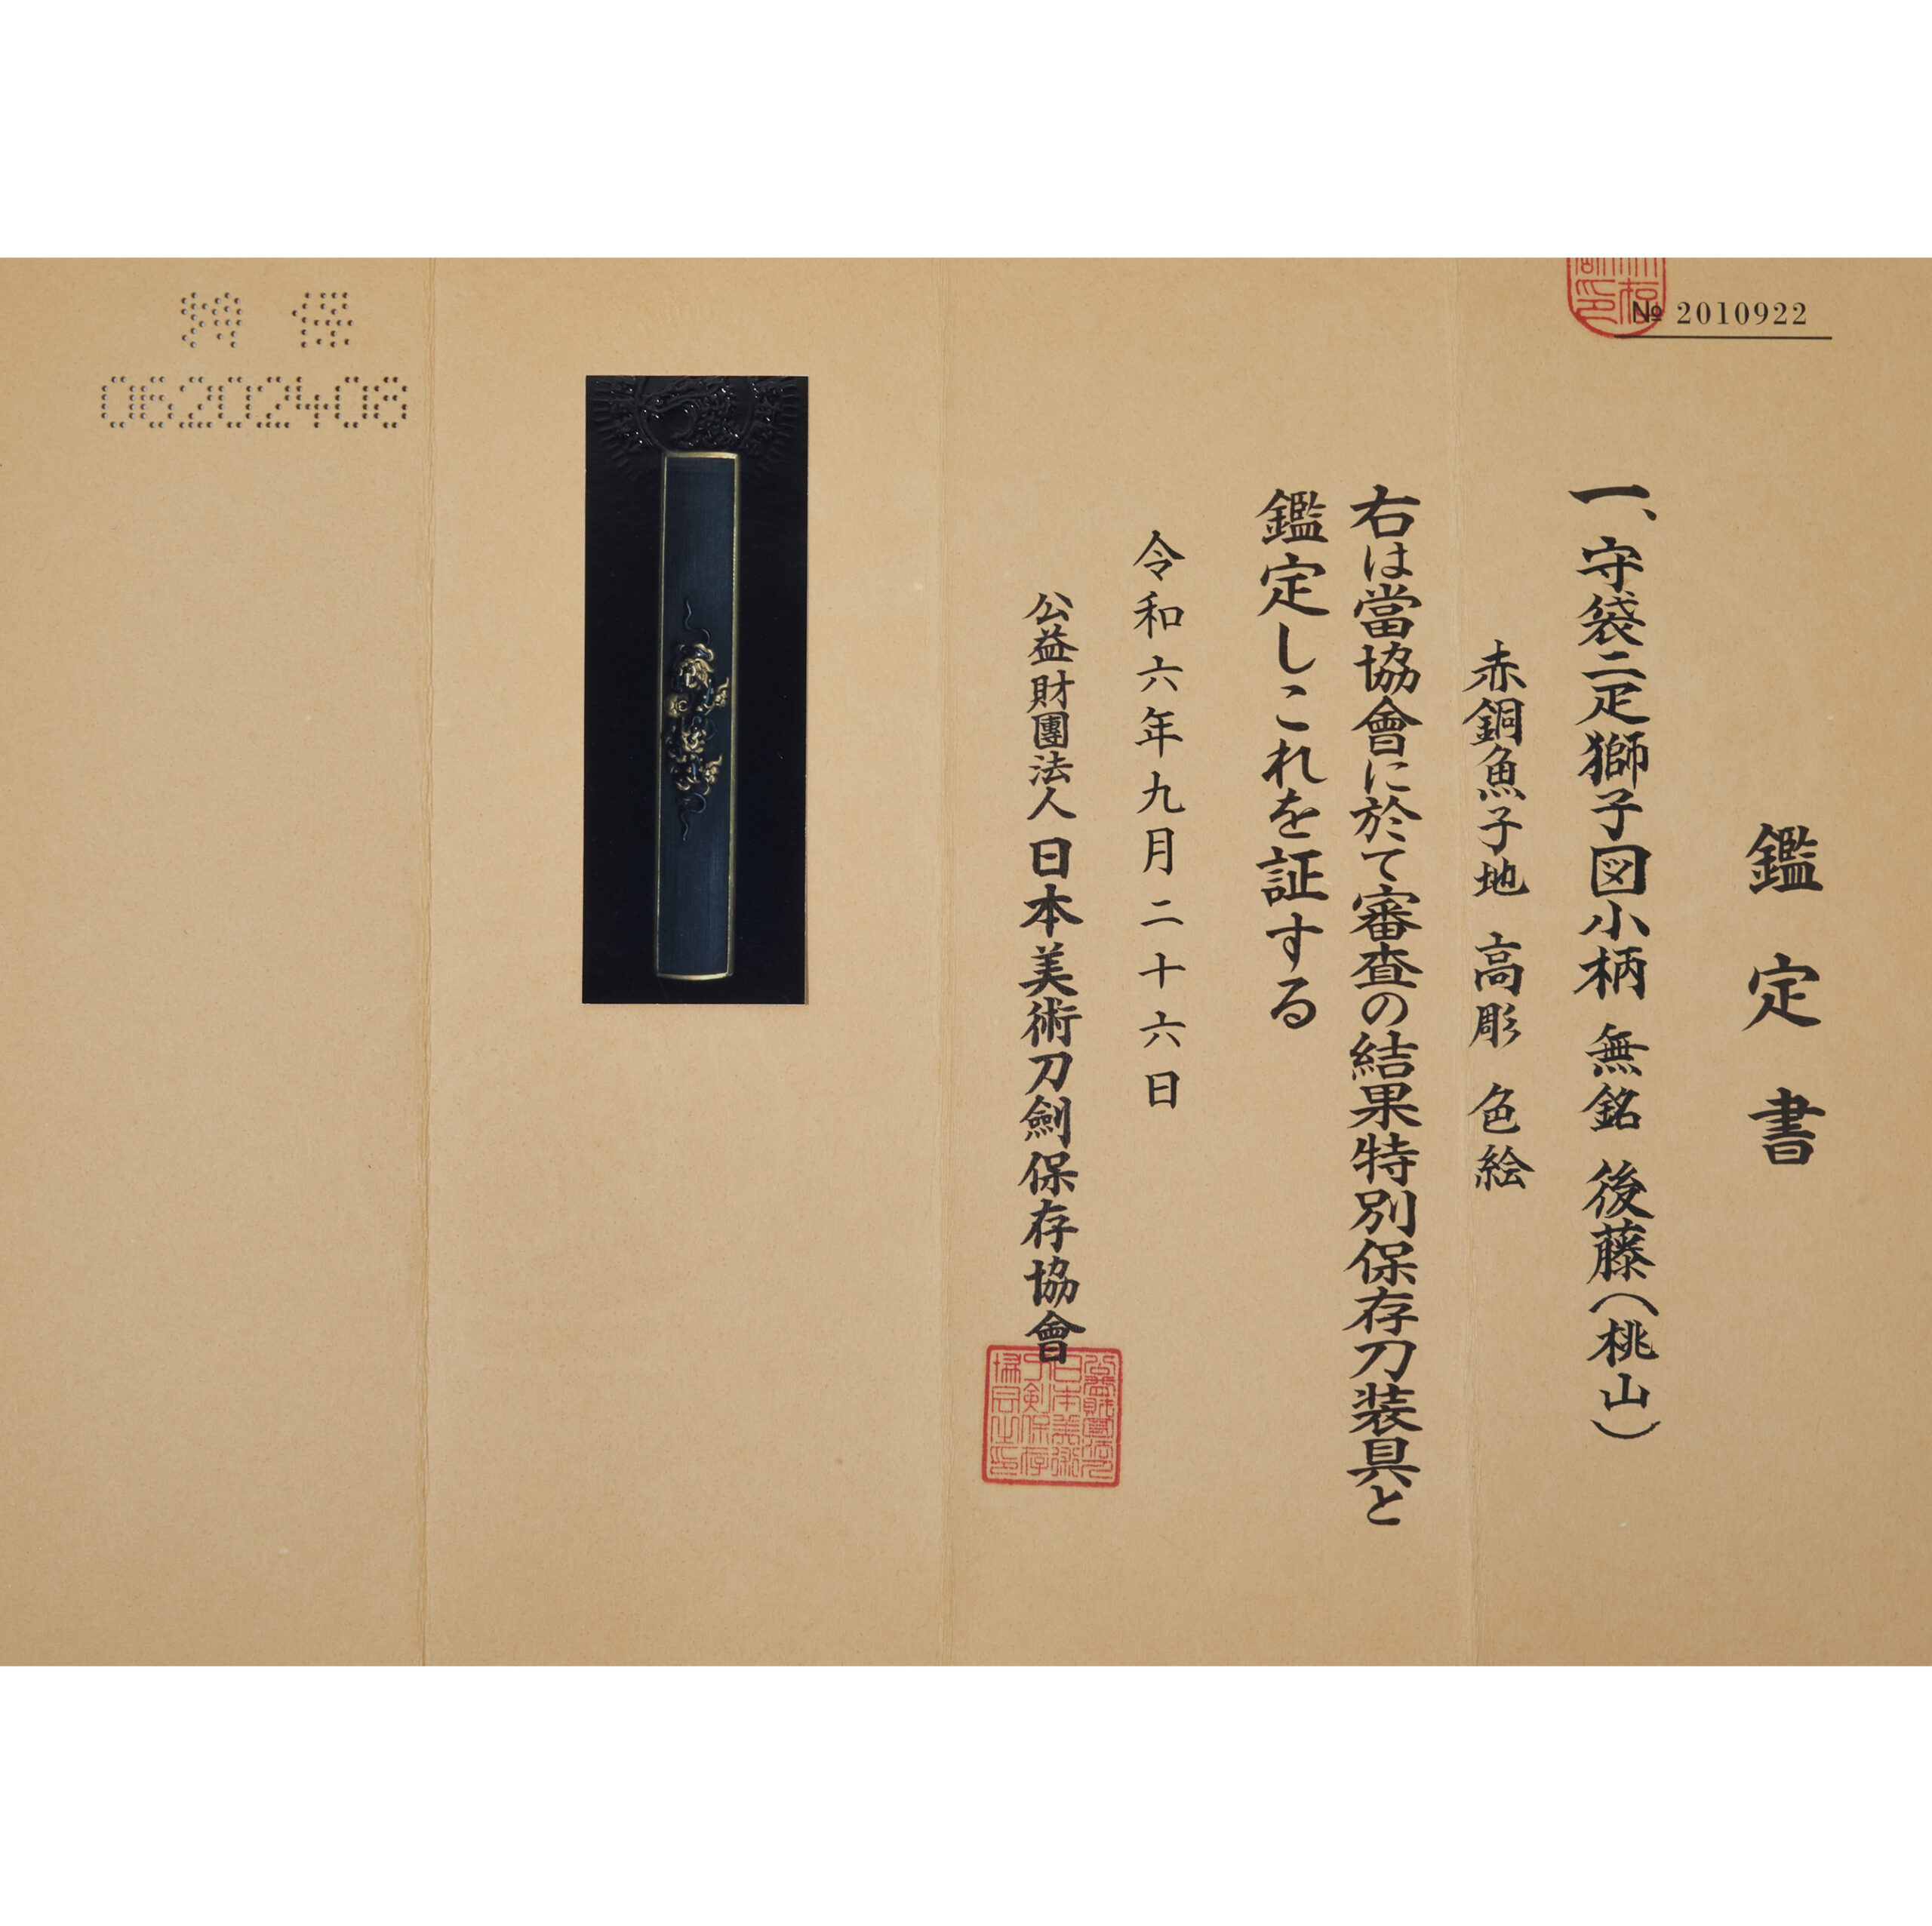 № 2010922
鑑定書
一、守袋二疋獅子図小柄 無銘 後藤(桃山)
赤銅魚子地 高彫 色絵
右は當協會に於て審査の結果特別保存刀装具と
鑑定しこれを証する
令和六年九月二十六日
公益財團法人日本美術刀劍保存協會
06202408